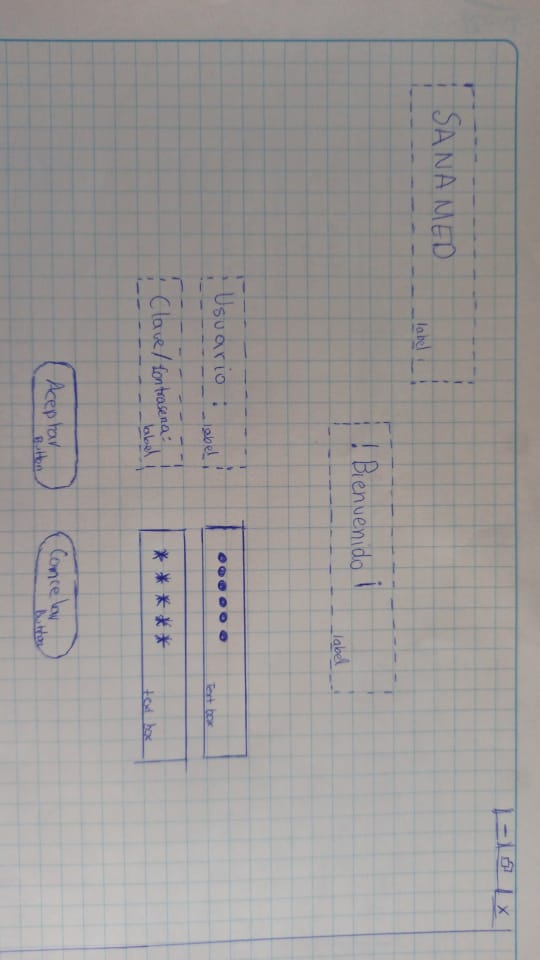 - x
SANAMED
label
¡Bienvenido!
label
Usuario :
label
●●●●●●
Text box
Clave/Contrasena:
label
*****
text box
Aceptar
Button
Cancelar
Button